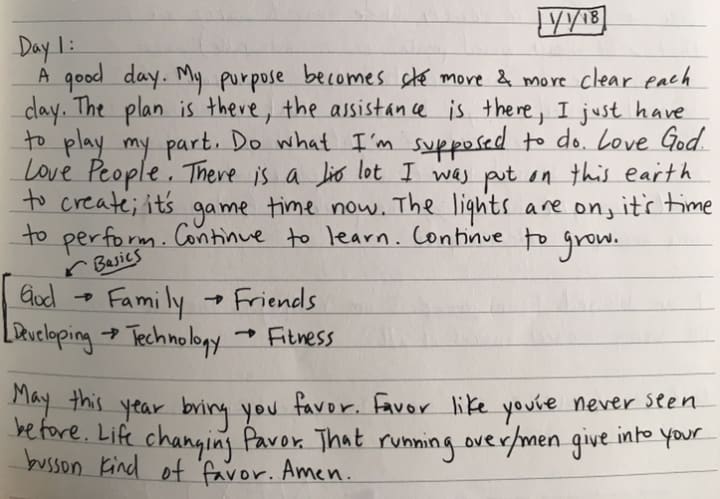 1/1/18
Day 1:
A good day. My purpose becomes more & more clear each
day. The plan is there, the assistance is there, I just have
to play my part. Do what I'm supposed to do. Love God.
Love People. There is a lot I was put on this earth
to create; it's game time now. The lights are on, it's time
to perform. Continue to learn. Continue to grow.
Basics
God → Family → Friends
Developing → Technology → Fitness
May this year bring you favor. Favor like you've never seen
before. Life changing favor. That running over/men give into your
busson kind of favor. Amen.